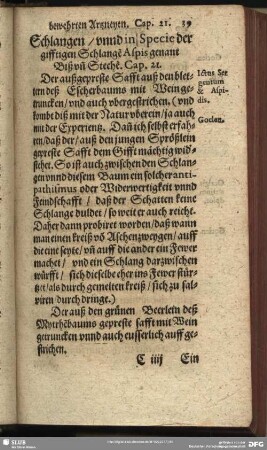 bewehrten Artzneyen. Cap. 21. 39
Schlangen / vnnd in Specie der
gifftigen Schlangẽ Aspis genant
Biß vñ Stechẽ. Cap. 21.
Der außgepreste Safft auß den blet-
tern deß Escherbaums mit Wein ge-
truncken / vnd auch vbergestrichen. (vnd
kombt diß mit der Natur vberein / ja auch
mit der Experientz. Dañ ich selbst erfah-
ren / daß der / auß den jungen Sprößlein
gepreste Safft dem Gifft mächtig wid-
stehe. So ist auch zwischen den Schlan-
gen vnnd diesem Baum ein solcher anti-
pathiismus oder Widerwertigkeit vnnd
Feindschafft / daß der Schatten keine
Schlange duldet / so weit er auch reicht.
Daher dann probiret worden / daß wann
man einen kreiß võ Aschenzweygen / auff
die eine seyte / vñ auff die ander ein Fewer
machet / vnd ein Schlang darzwischen
würfft / sich dieselbe eher ins Fewer stür-
tzet / als durch gemelten kreiß / sich zu sal-
viren durch dringe.)
Der auß den grünen Beerlein deß
Myrthẽbaums gepreste safft mit Wein
getruncken vnnd auch eusserlich auff ge-
strichen.
C iiij Ein
Ictus Ser
pentum
& Aspi-
dis.
Goclen.
SLUB
DFG